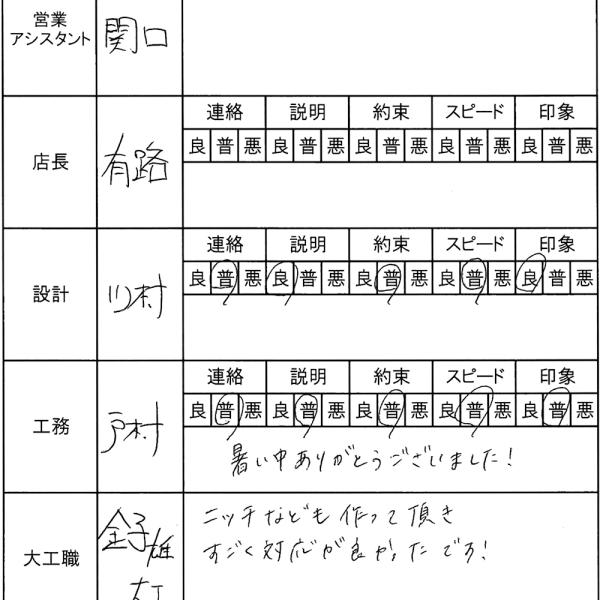 営業
アシスタント
関口
連絡 説明 約束 スピード 印象
店長
有路
良 普 悪 良 普 悪 良 普 悪 良 普 悪 良 普 悪
連絡 説明 約束 スピード 印象
設計
川村
良 普 悪 良 普 悪 良 普 悪 良 普 悪 良 普 悪
連絡 説明 約束 スピード 印象
工務
戸村
良 普 悪 良 普 悪 良 普 悪 良 普 悪 良 普 悪
暑い中ありがとうございました!
大工職
金子雄
大工
ニッチなども作って頂き
すごく対応が良かったです!